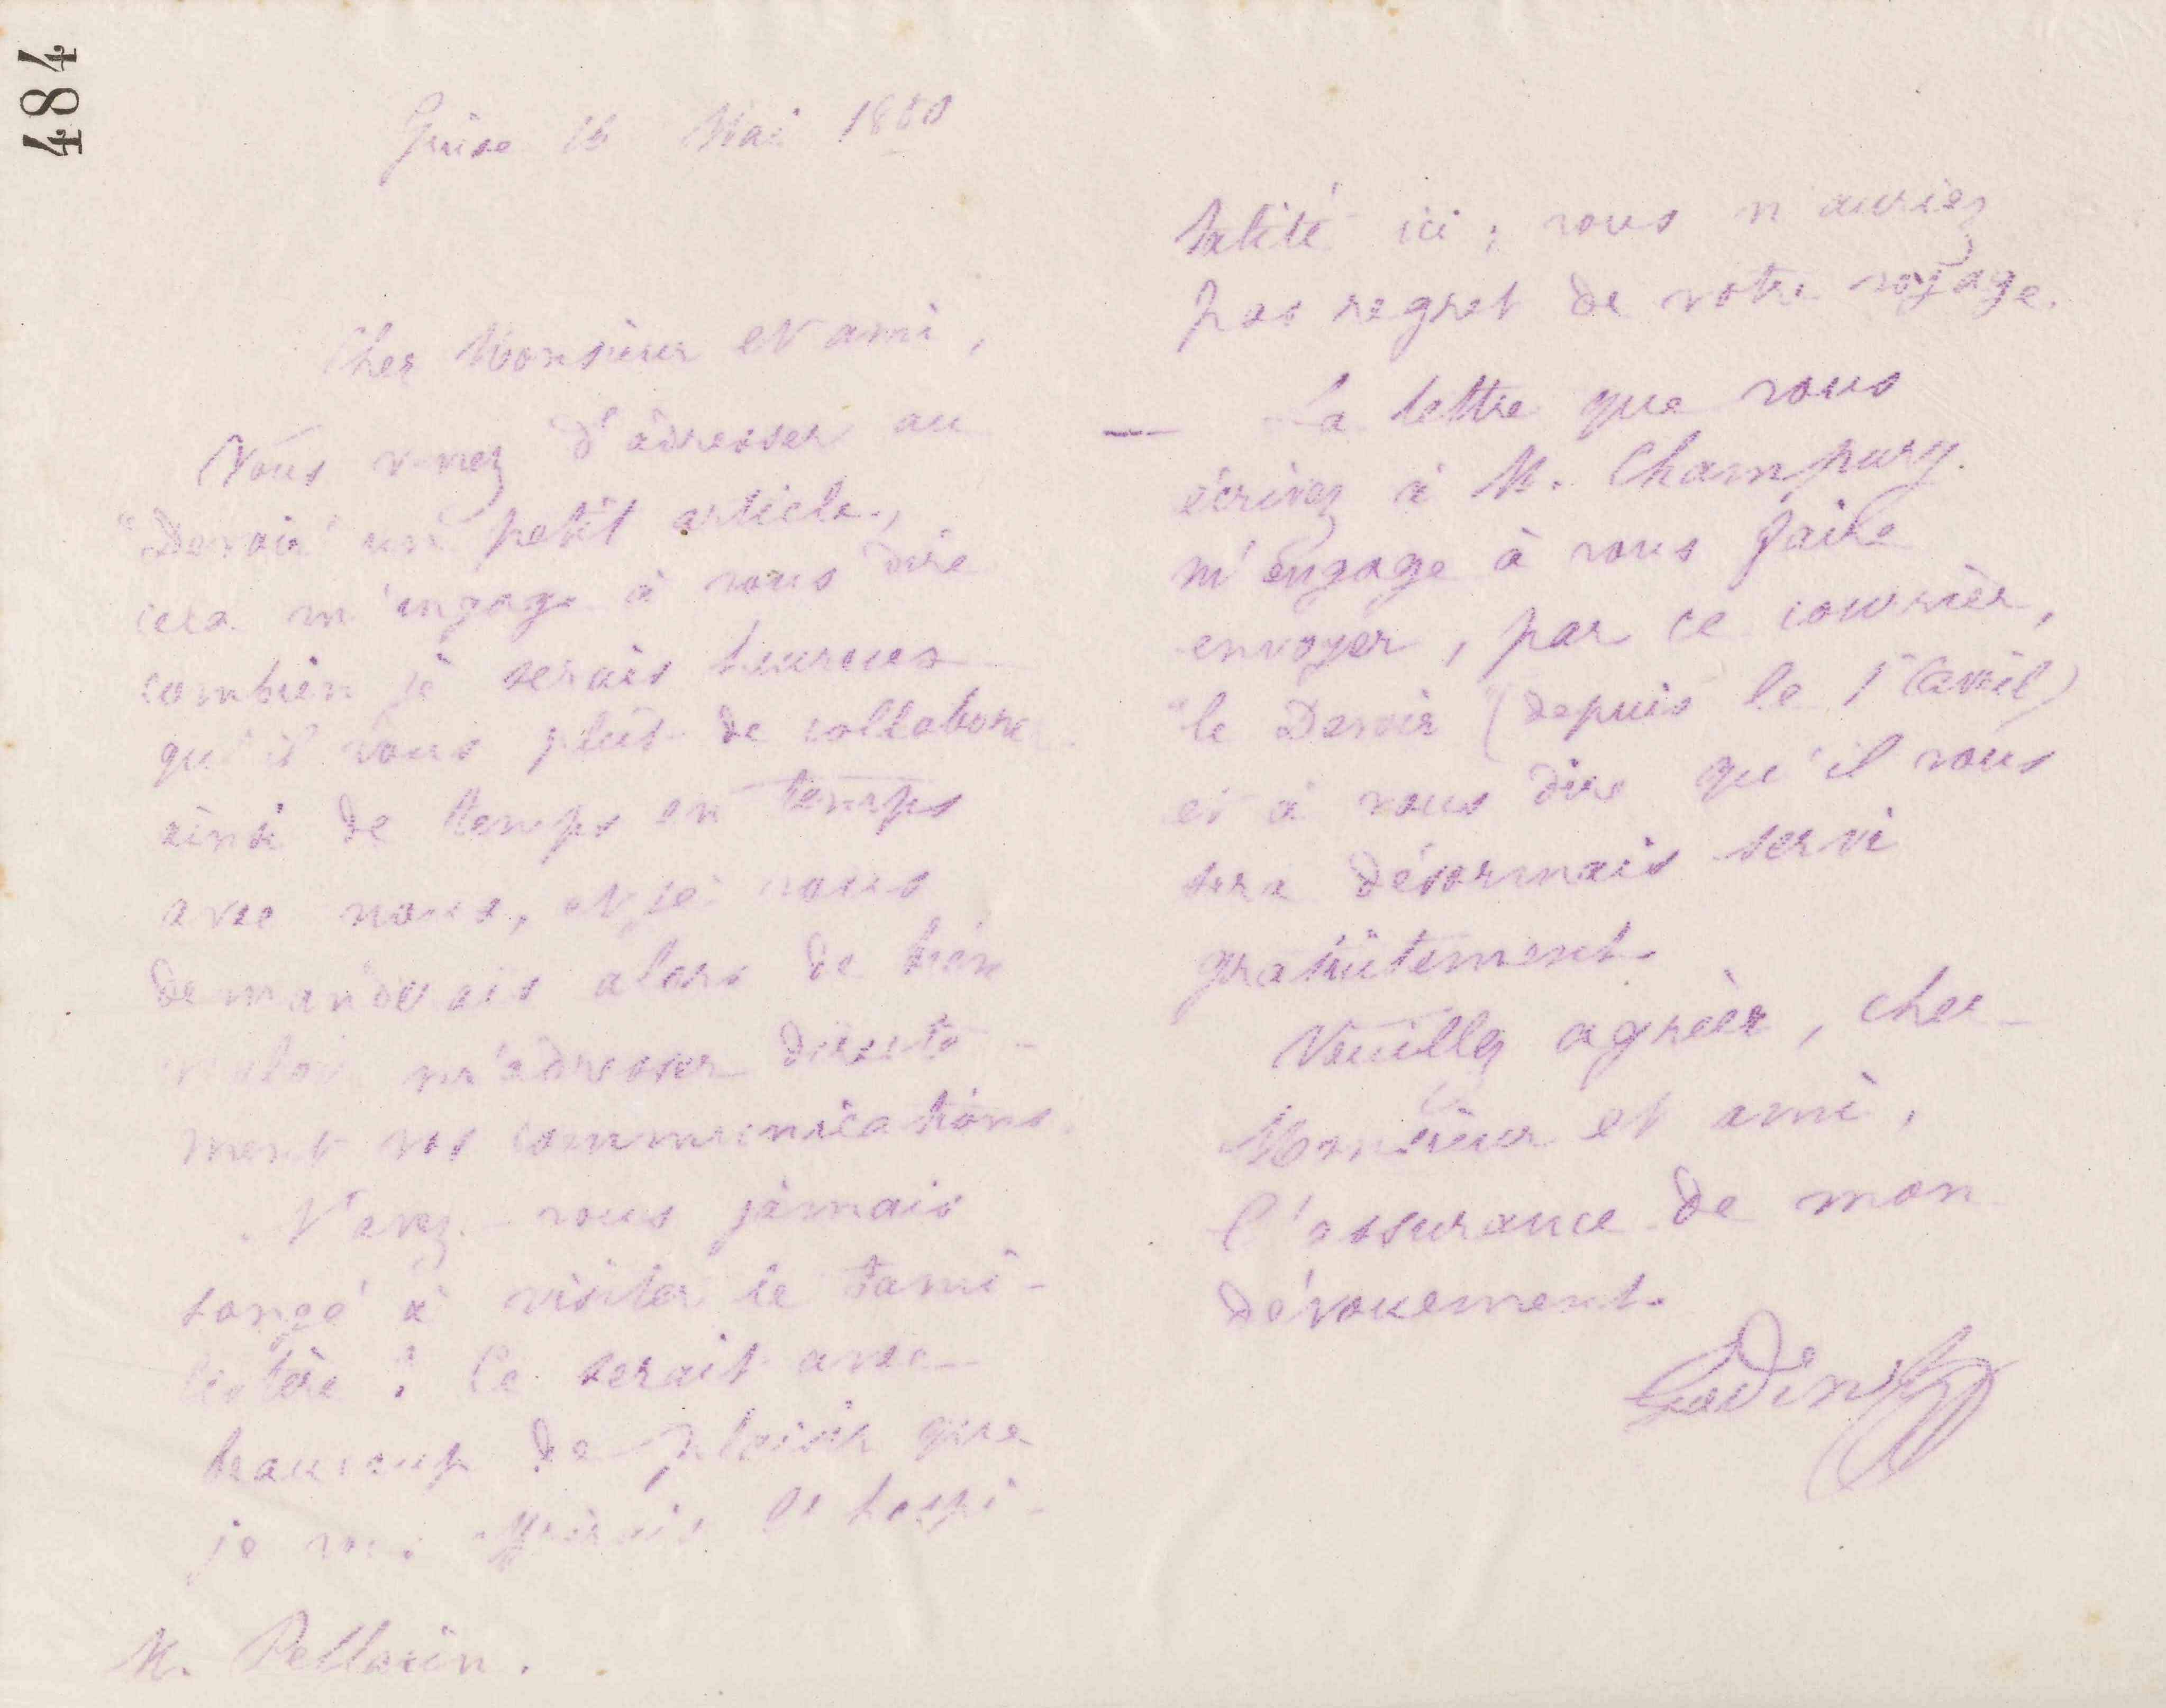 484
Guise 15 Mai 1880
Cher Monsieur et ami,
Vous venez d'adresser au
"Devoir" un petit article,
cela m'engage à vous dire
combien je serais heureux
qu'il vous plût de collaborer
ainsi de temps en temps
avec nous, et je vous
demanderais alors de bien
vouloir m'adresser directe-
ment vos communications.
N'avez-vous jamais
songé à visiter le Fami-
listère ? Ce serait avec
beaucoup de plaisir que
je vous offrirais l'hospi-
M. Pellarin.
talité ici ; vous n'auriez
pas regret de votre voyage.
— La lettre que vous
écrivez à M. Champury
m'engage à vous faire
envoyer, par ce courrier,
"le Devoir (depuis le 1er avril)
et à vous dire qu'il vous
sera désormais servi
gratuitement.
Veuillez agréer, cher
Monsieur et ami,
l'assurance de mon
dévouement.
Godin